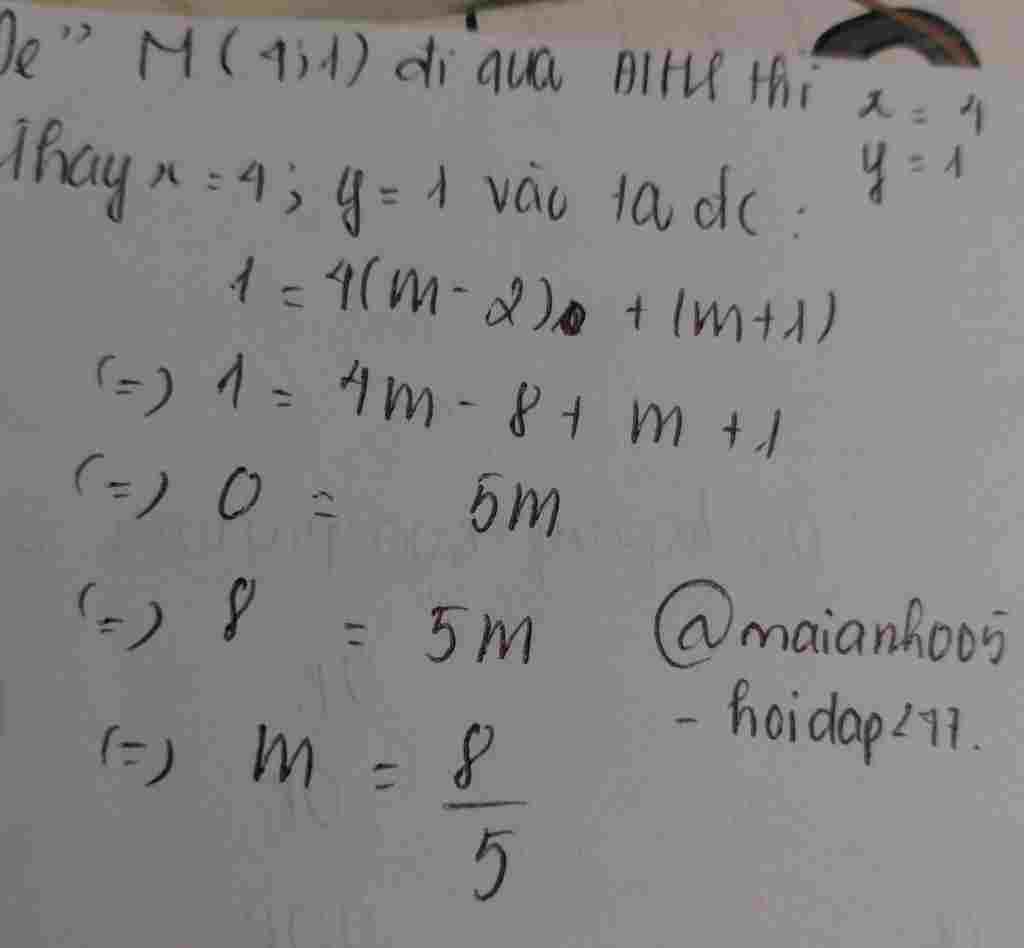 Để" M(4;1) đi qua ĐTHS thì x = 4
y = 1
Thay x = 4; y = 1 vào ta dc :
1 = 4(m - 2) + (m+1)
(=) 1 = 4m - 8 + m + 1
(=) 0 = 5m
(=) 8 = 5m
(=) m = 8/5
@maianh005
- hoidap247.